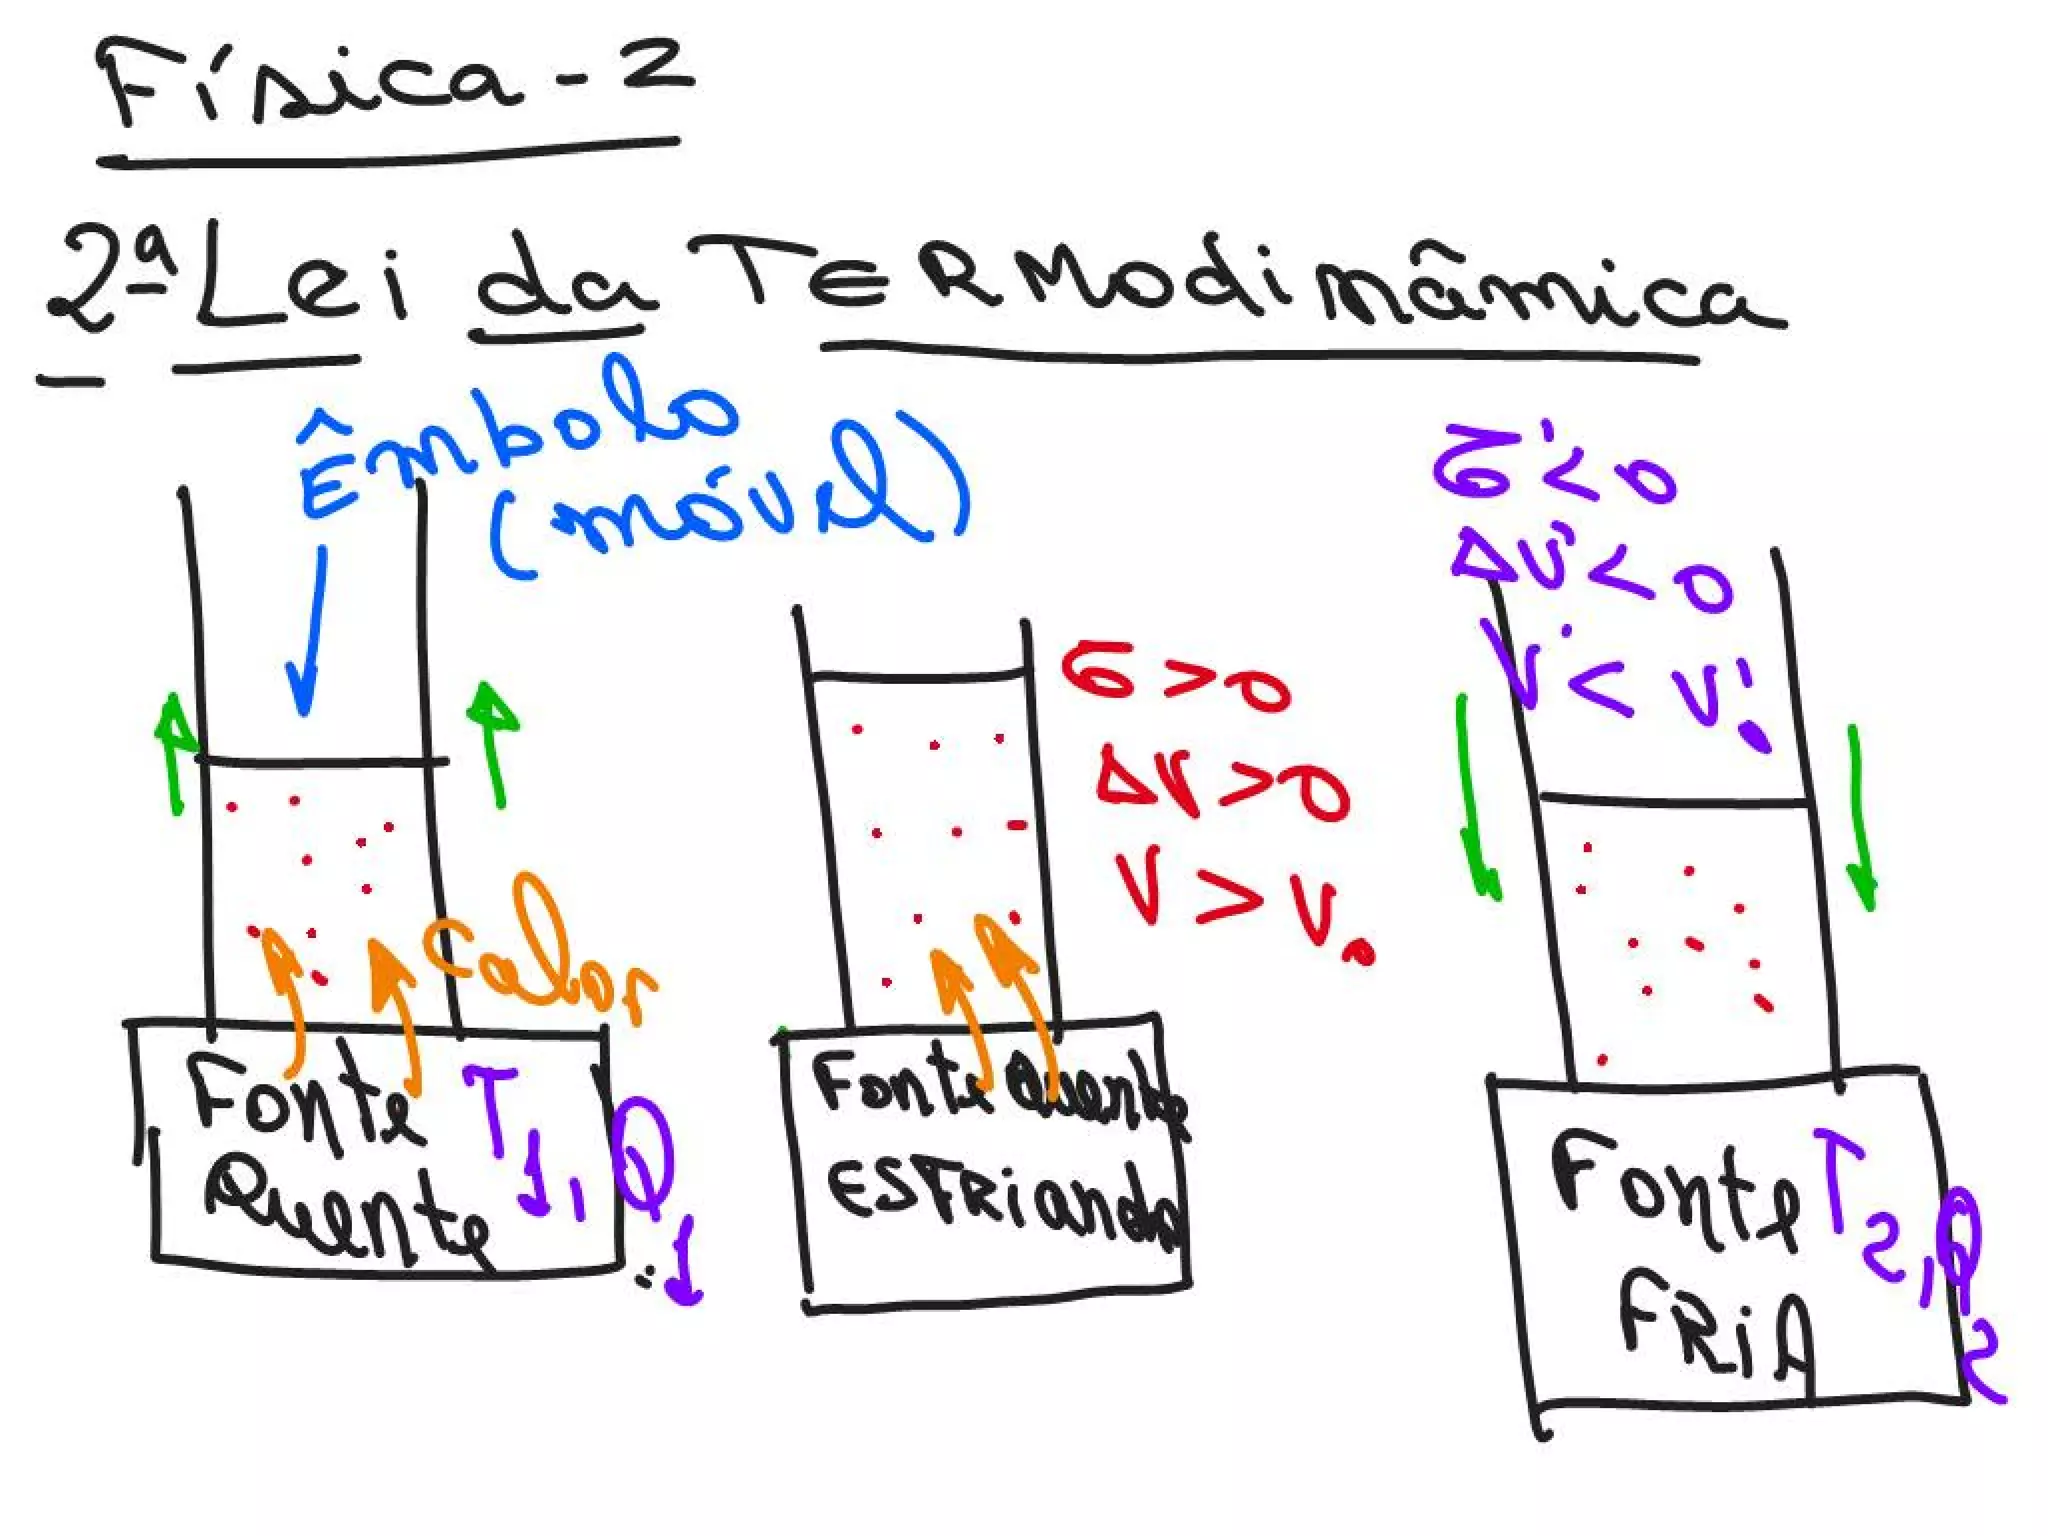 Física - 2
2ª Lei da TERModinâmica
Êmbolo
(móvel)
calor
Fonte
Quente
T1, Q1
𝒢 > 0
ΔV > 0
V > V0
Fonte Quente
ESFRiando
𝒢' < 0
ΔV' < 0
V' < V'0
Fonte
FRiA
T2, Q2